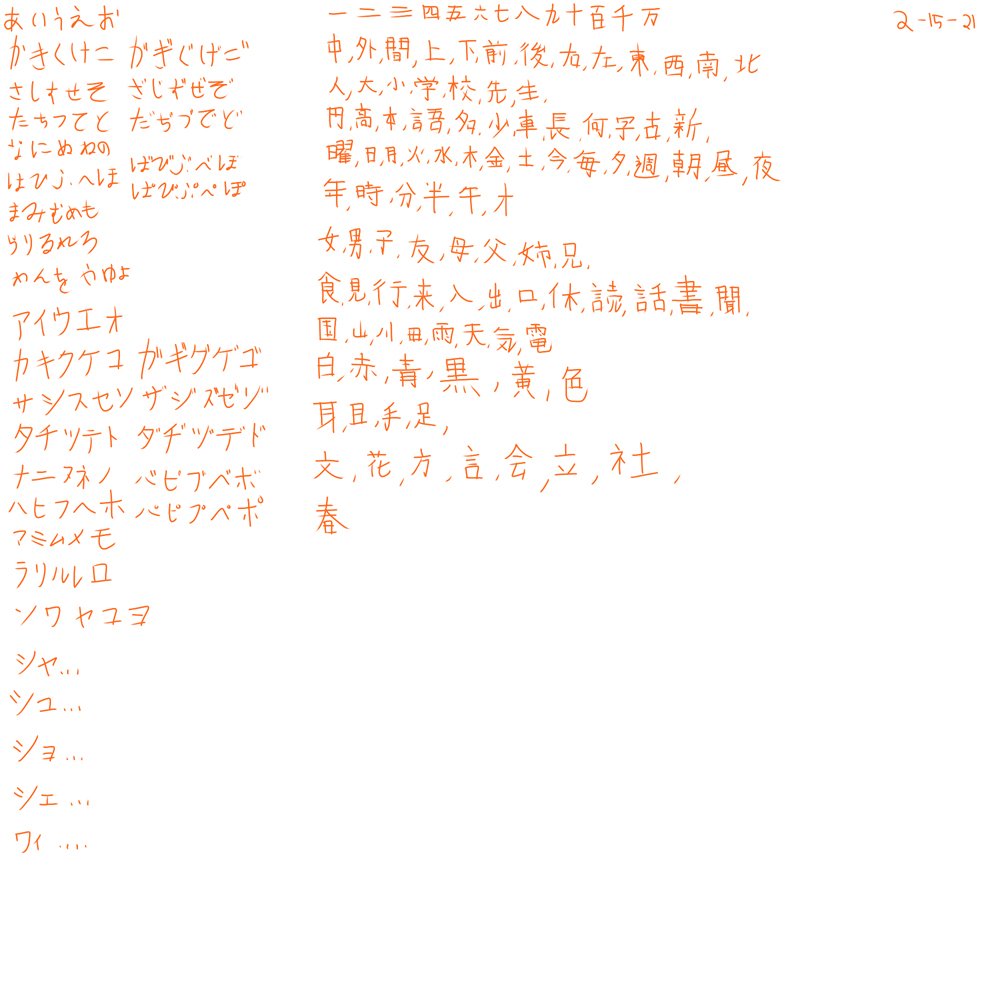 あいうえお
かきくけこ がぎぐげご
さしすせそ ざじずぜぞ
たちつてと だぢづでど
なにぬねの
はひふへほ ばびぶべぼ
ぱびぷぺぽ
まみむめも
らりるれろ
わんを やゆよ
アイウエオ
カキクケコ ガギグゲゴ
サシスセソ ザジズゼゾ
タチツテト ダヂヅデド
ナニヌネノ バビブベボ
ハヒフヘホ バピプペポ
マミムメモ
ラリルレロ
ンワヤユヨ
シャ...
シュ...
ショ...
シェ...
ウィ....
一二三四五六七八九十百千万
中,外,間,上,下,前,後,右,左,東,西,南,北
人,大,小,学,校,先,生,
円,高,本,語,多,少,車,長,何,字,古,新,
曜,日,月,火,水,木,金,土,今,毎,夕,週,朝,昼,夜
年,時,分,半,午,才
女,男,子,友,母,父,姉,兄,
食,見,行,来,入,出,口,休,読,話,書,聞,
国,山,川,田,雨,天,気,電
白,赤,青,黒,黄,色
耳,目,手,足,
文,花,方,言,会,立,社,
春
2-15-21